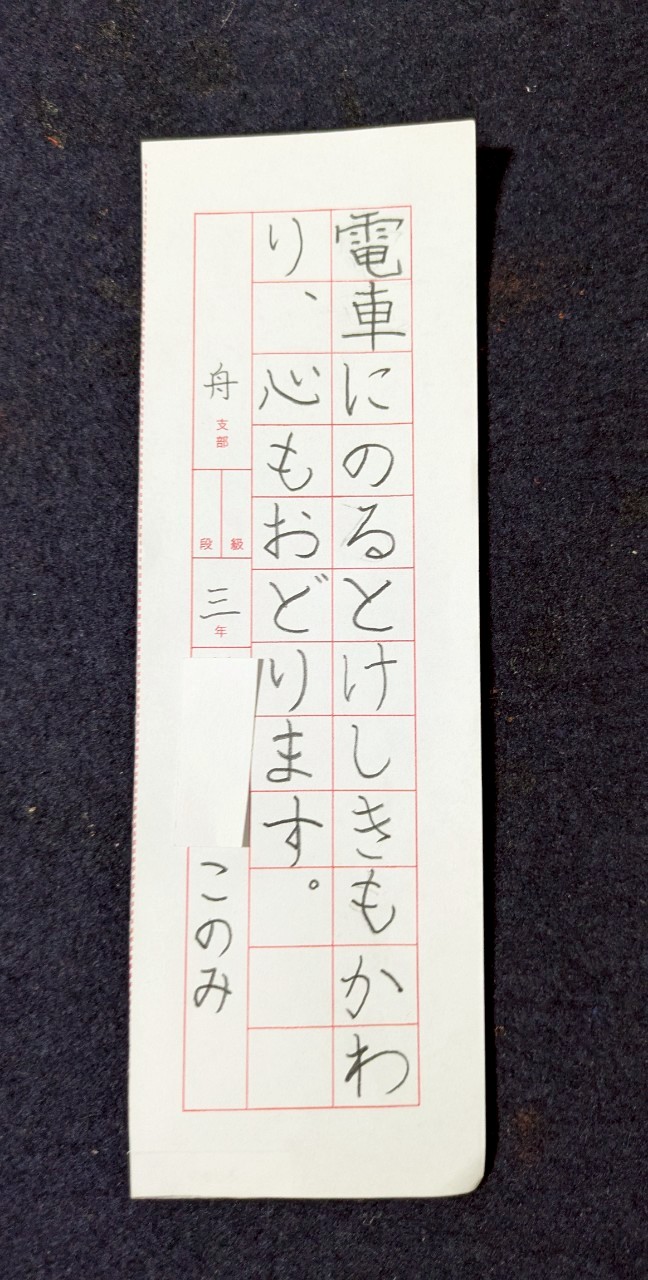 電車にのるとけしきもかわ
り、心もおどります。
舟支部
級
段
三年
このみ